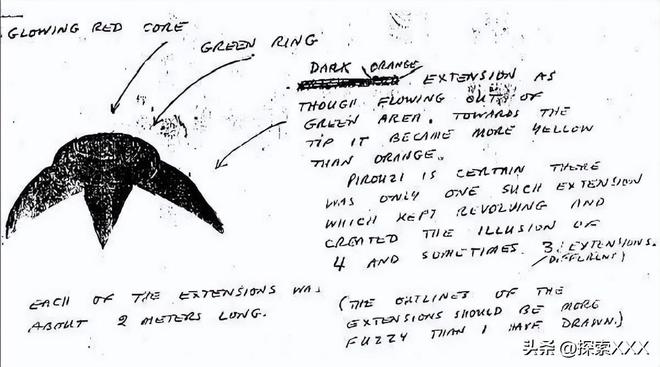 GLOWING RED CORE
GREEN RING
DARK ORANGE EXTENSION AS
THOUGH FLOWING OUT OF
GREEN AREA. TOWARDS THE
TIP IT BECAME MORE YELLOW
THAN ORANGE.
PIROUZI IS CERTAIN THERE
WAS ONLY ONE SUCH EXTENSION
WHICH KEPT REVOLVING AND
CREATED THE ILLUSION OF
4 AND SOMETIMES 3 EXTENSIONS.
DIFFERENT
EACH OF THE EXTENSIONS WAS
ABOUT 2 METERS LONG.
(THE OUTLINES OF THE
EXTENSIONS SHOULD BE MORE
FUZZY THAN I HAVE DRAWN.)
头条 @探索XXX